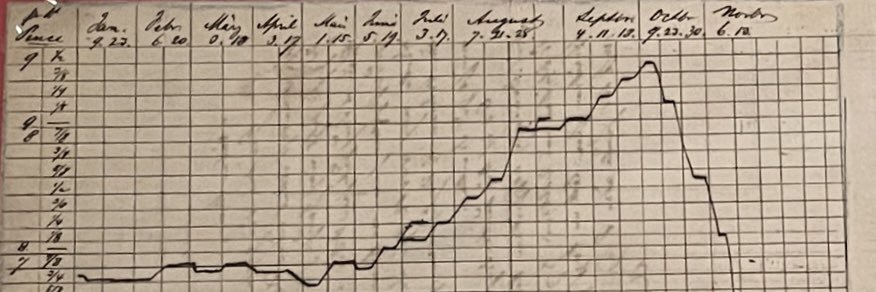 Pence Jan. Febr. März April Mai Juni Juli August Septbr Octbr Novbr
9.23. 6.20 3.17 1.15. 5.19. 3.17. 7.21.28. 4.11.18. 9.23.30. 6.13.
9 1/2
3/8
1/4
1/8
9
8 7/8
3/4
5/8
1/2
3/8
1/4
1/8
8
7 7/8
3/4